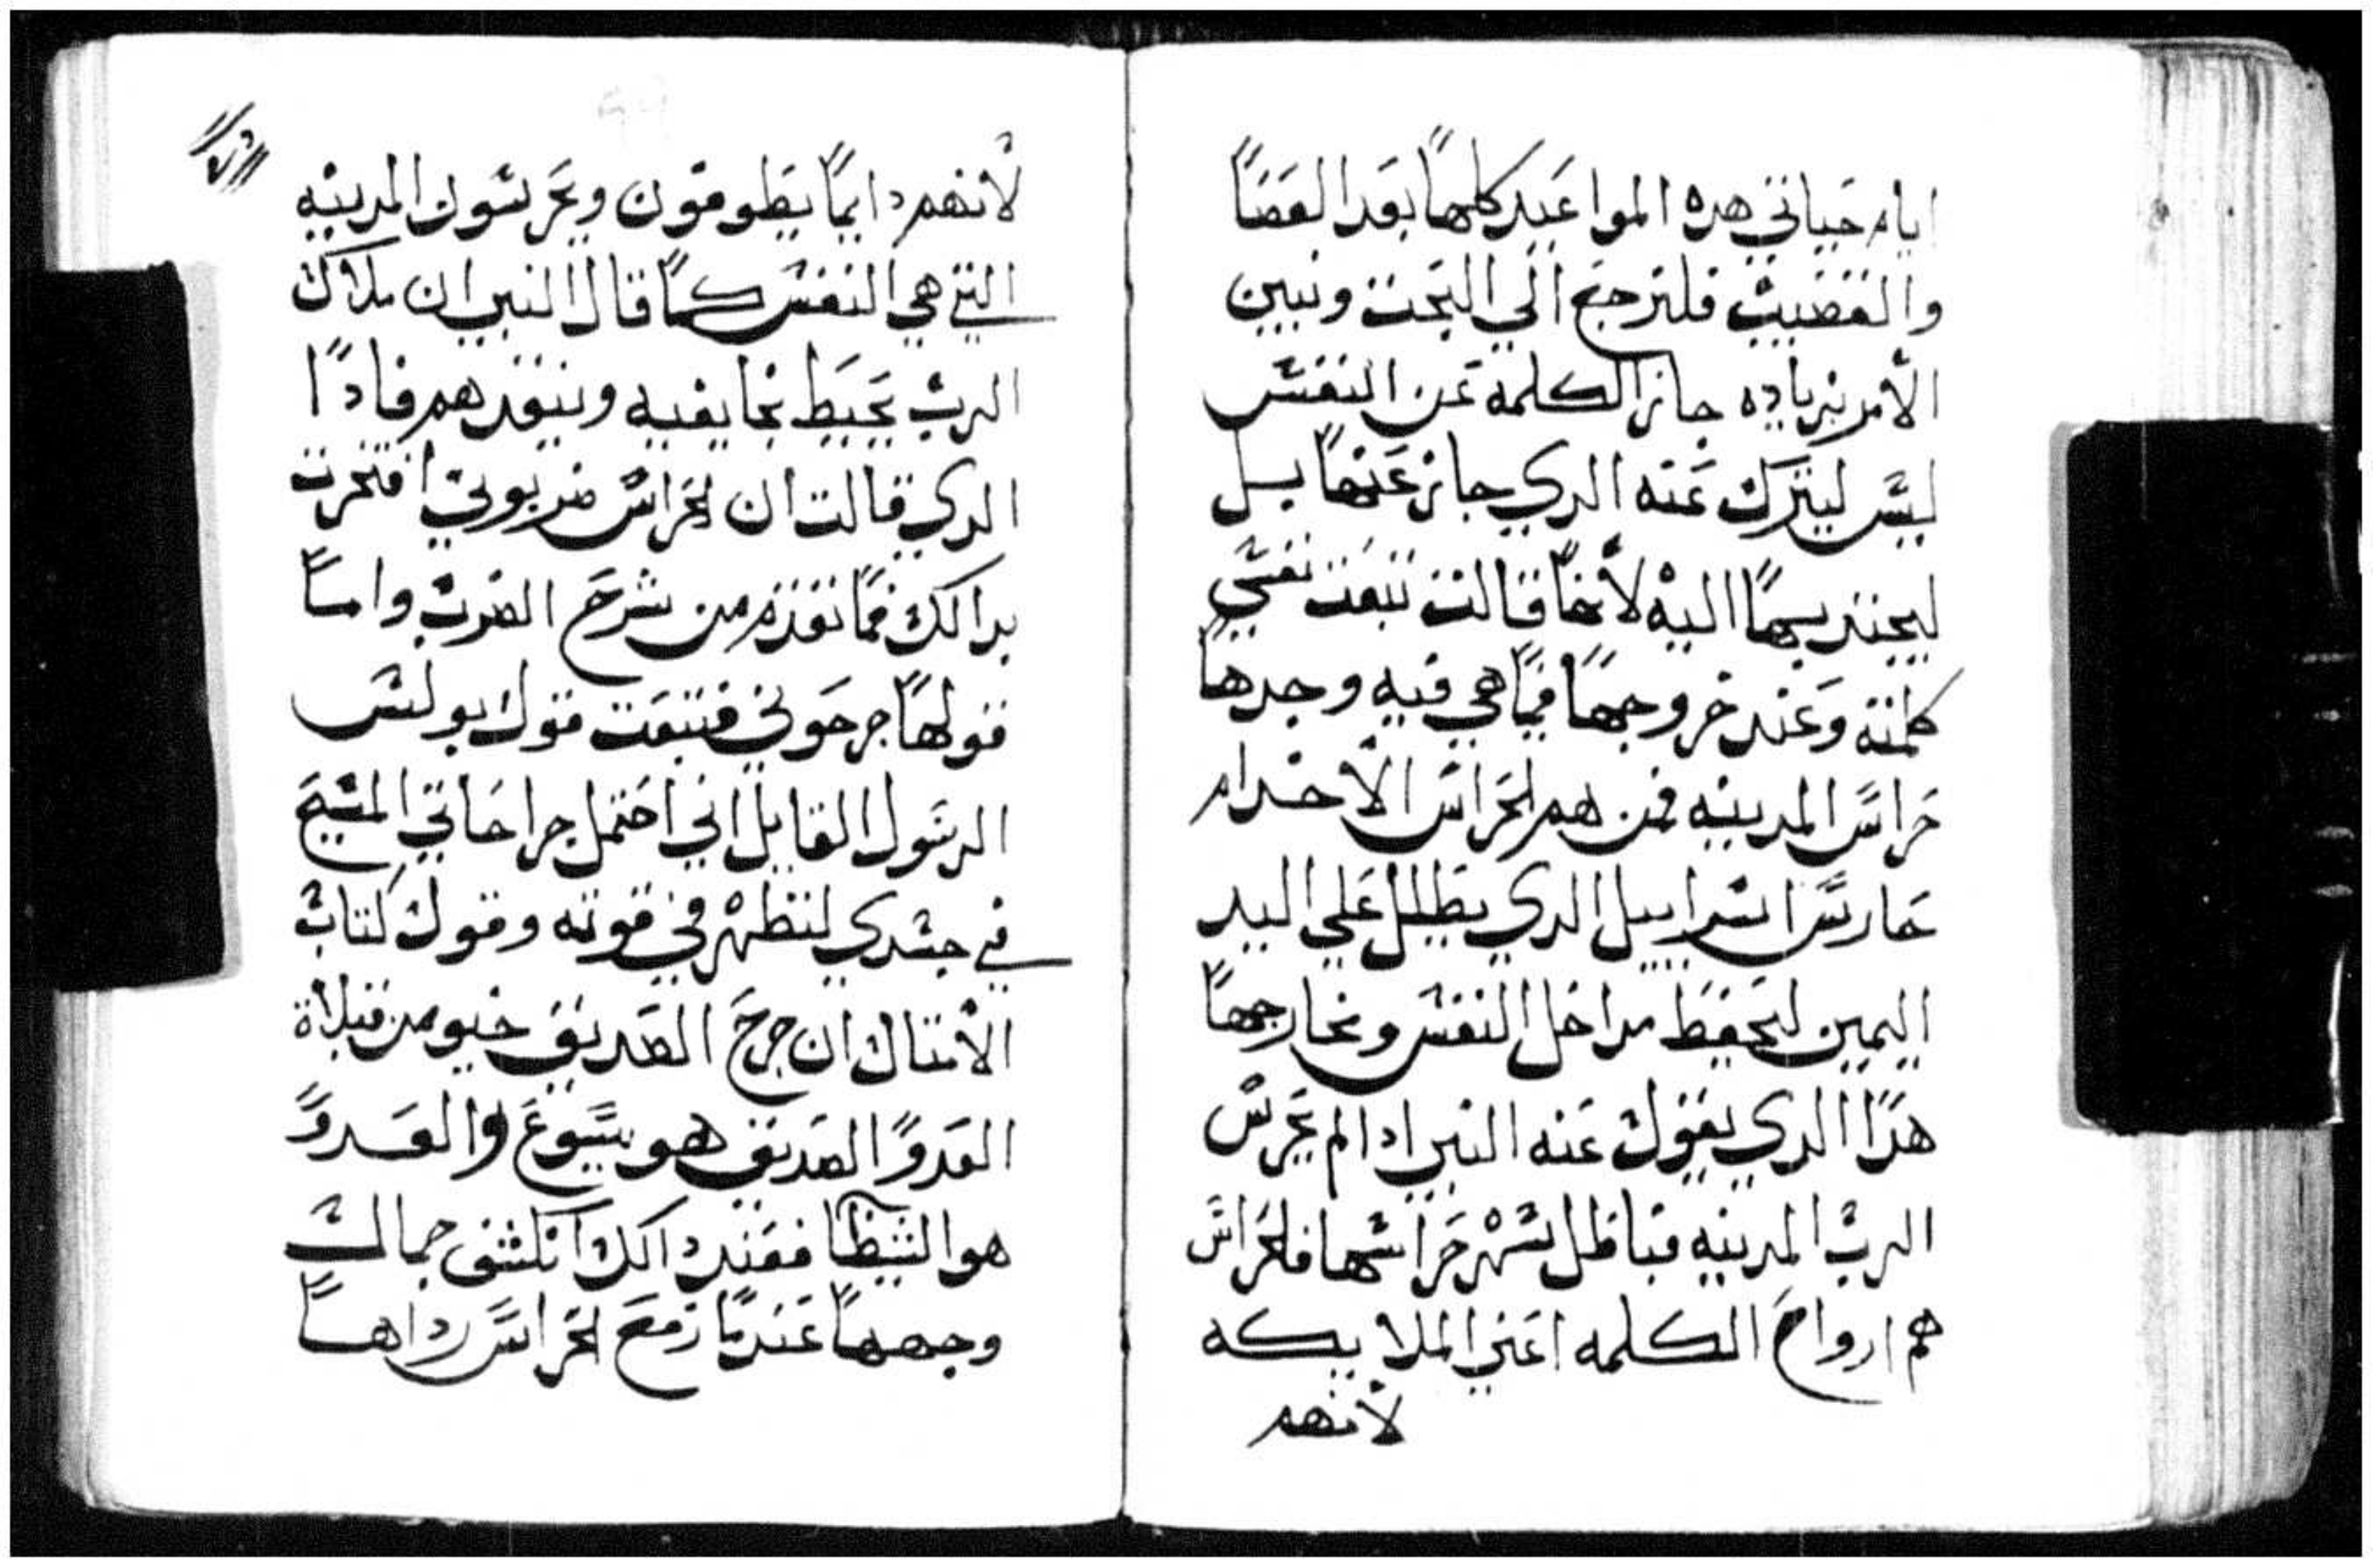 ايام حياتي هده المواعيد كلها بعد العصا
والقضيب فلنرجع الي البحث ونبين
الأمر بزياده جاز الكلمه عن النفس
ليس ليترك عنه الدي جاز عنها بل
ليجتذبها اليه لأنها قالت تبعت نفسي
كلمته وعند خروجها مما هي فيه وجدها
حراس المدينه فمن هم الحراس الأخدام
حارس اسراييل الدي يظلل علي اليد
اليمين ليحفظ مداخل النفس ومخارجها
هدا الدي يقول عنه النبي ادا لم يحرس
الرب المدينه فباطل سهر حراسها فالحراس
هم ارواح الكلمه اعني الملايكه
لأنهم
لأنهم دايما يطوفون ويحرسون المدينه
التي هي النفس كما قال النبي ان ملاك
الرب يحيط بخايفيه وينقدهم فادا
الدي قالت ان الحراس ضربوني افتخرت
بدالك فما تقدم من شرح الضرب واما
قولها جرحوني فتبعت قول بولس
الرسول القايل اني احتمل جراحاتي المسيح
في جسدي لتظهر في قوته وقول كتاب
الأمتال ان جرح الصديق خير من قبلاة
العدو الصديق هو يسوع والعدو
هو الشيطان فعند دالك انكشف جمال
وجهها عندما رفع الحراس رداها